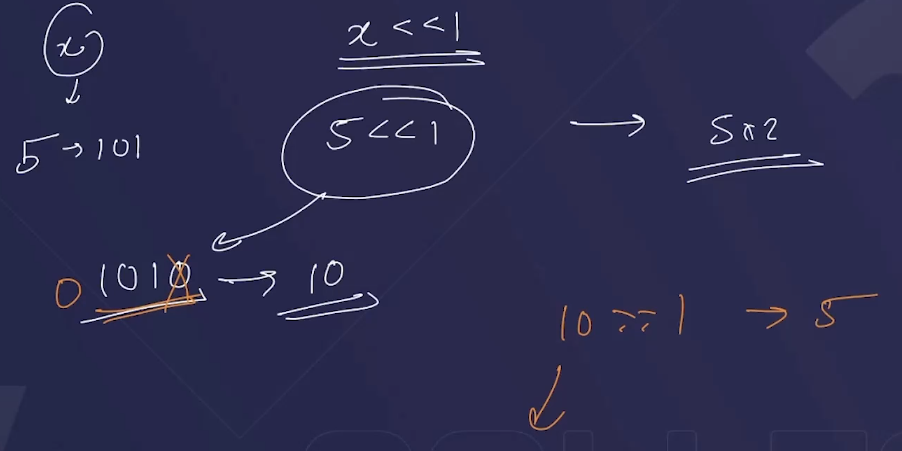 x
x<<1
5<<1 → 5*2
5→101
0 1010 → 10
10 >> 1 → 5